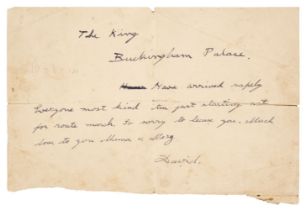 The King
Buckingham Palace.
Have arrived safely
Everyone most kind Am just starting out
for route march. So sorry to leave you. Much
love to you Mama & Mary.
David.